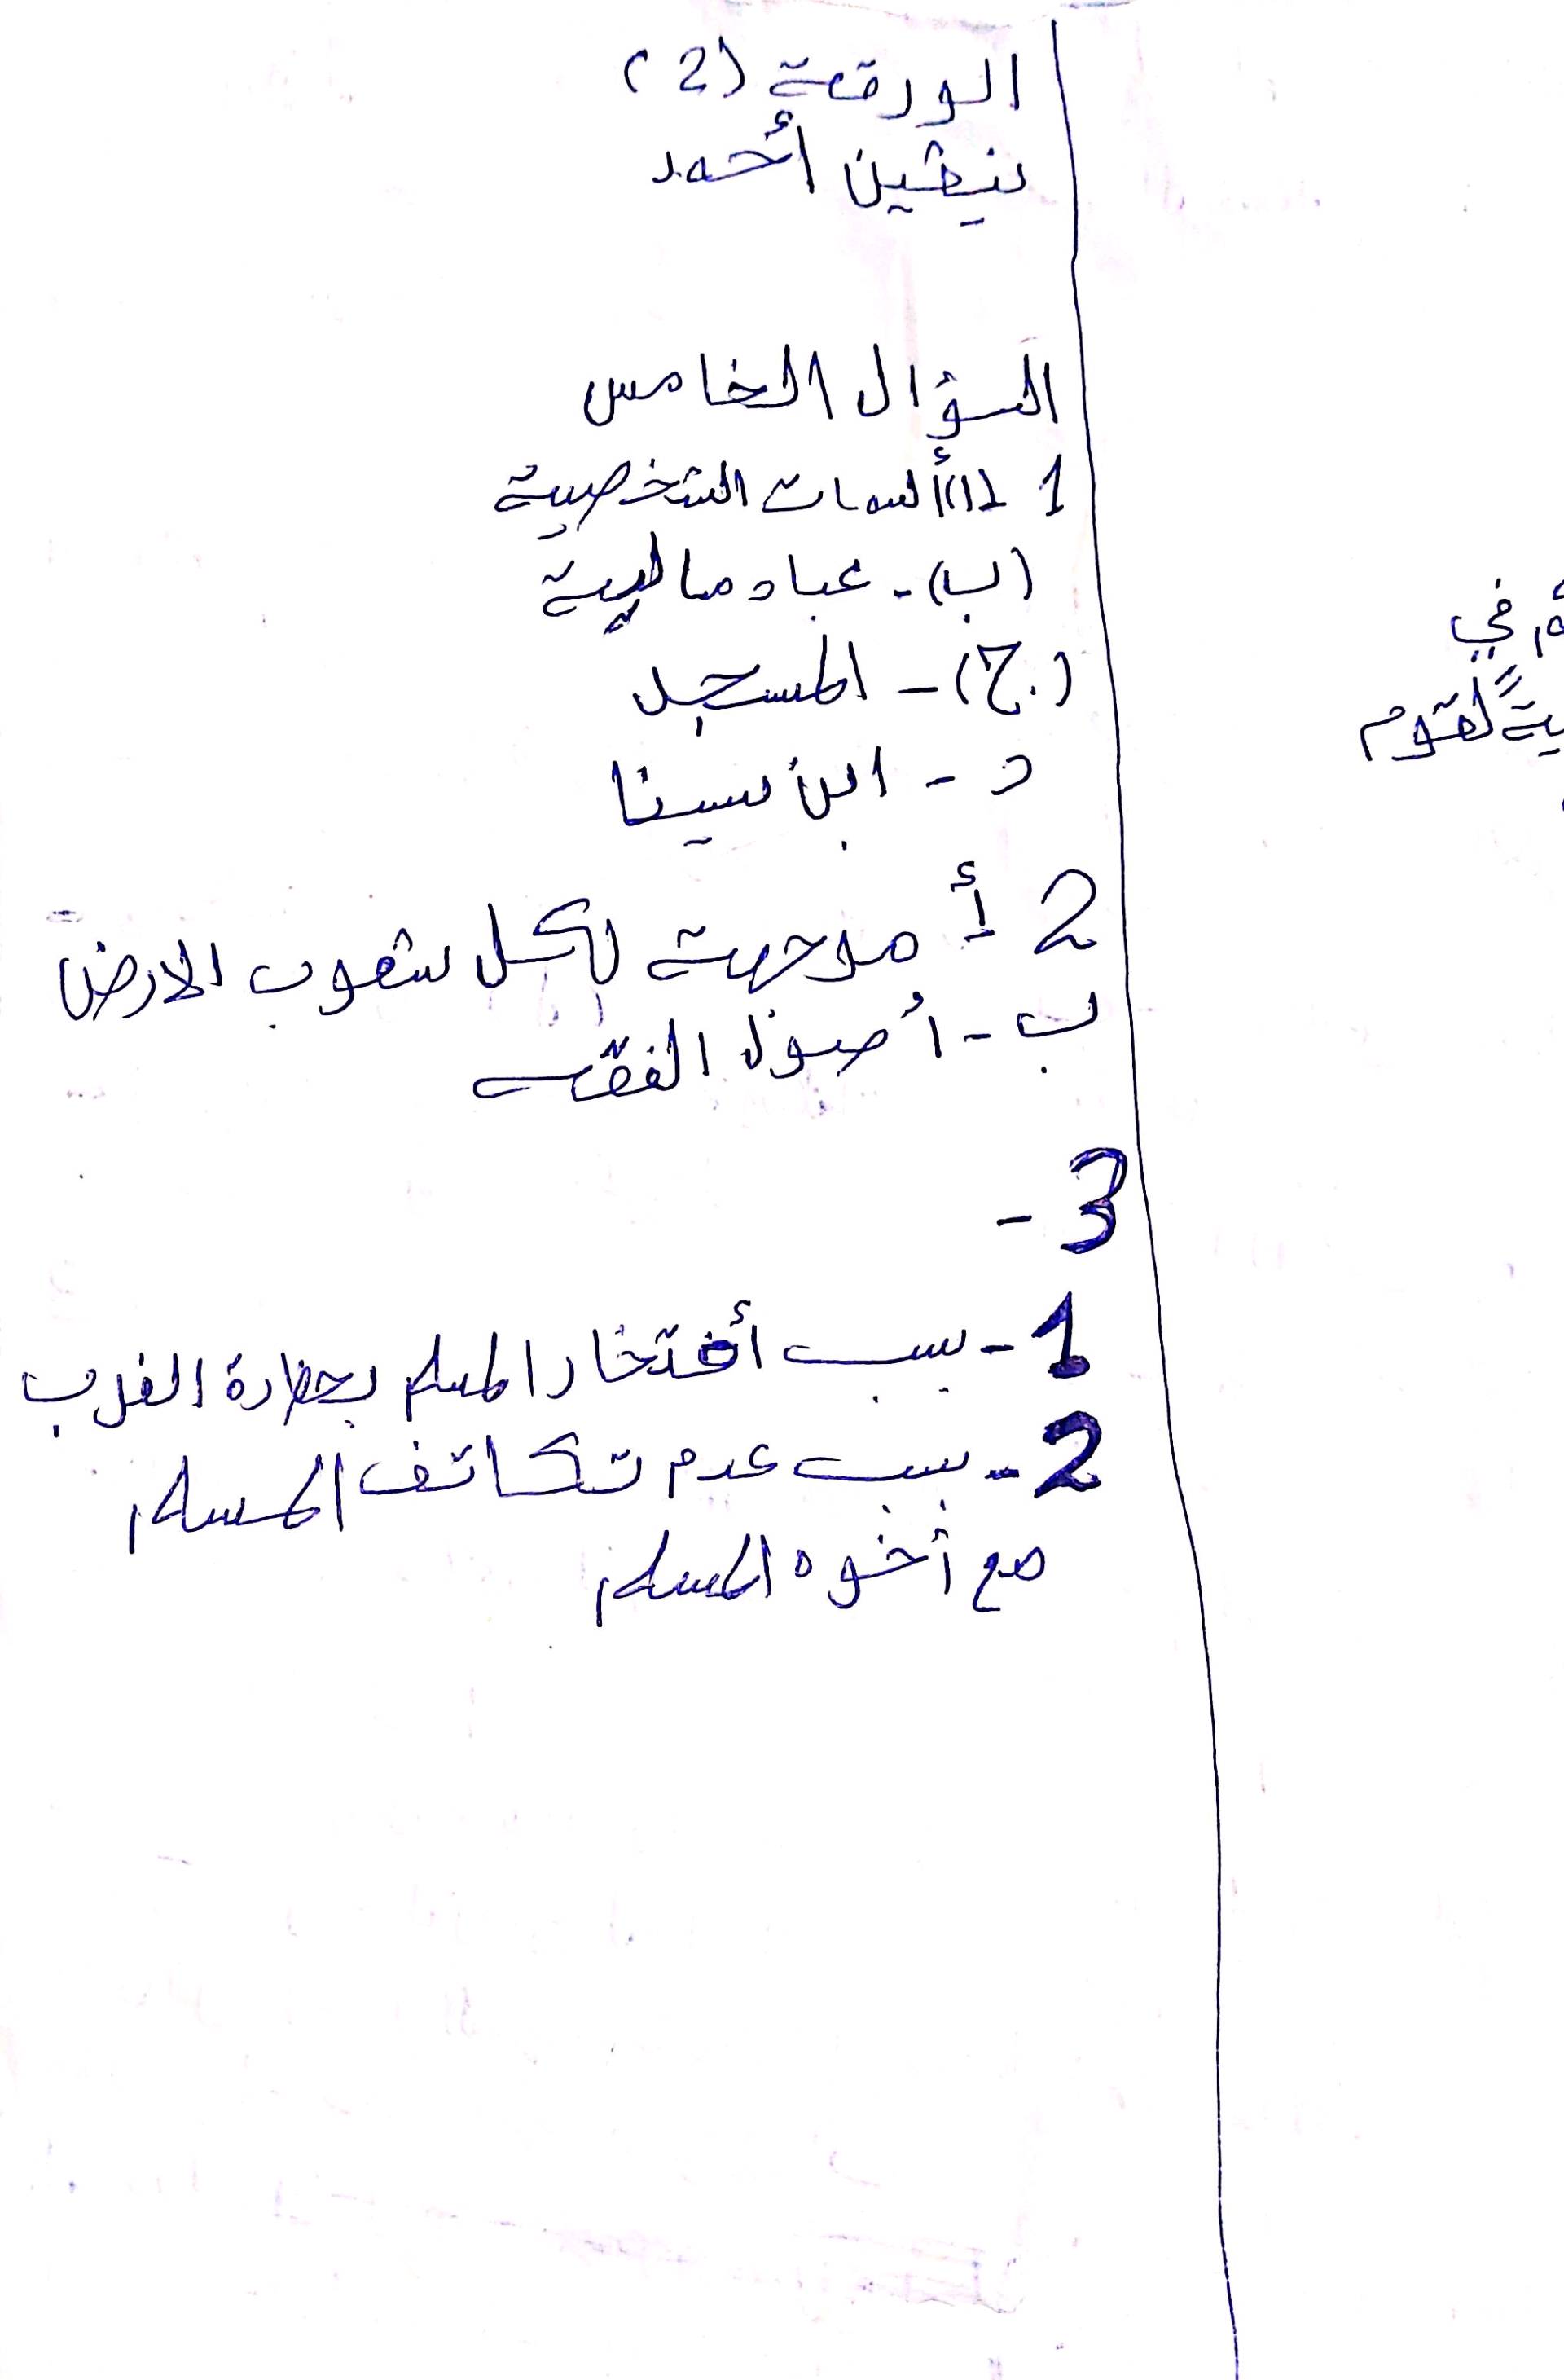 الورقة (2)
نيڤين أحمد
السؤال الخامس
1 (أ) السمات الشخصية
(ب) - عباد مالية
(ج) - المسجد
د - ابن سينا
2 أ - موجهة لكل شعوب الارض
ب - أصول الفقه
3 -
1 - سبب أفتخار المسلم بحضارة الغرب
2 - سبب عدم تكاتف المسلم
مع أخوه المسلم
في
لقوم